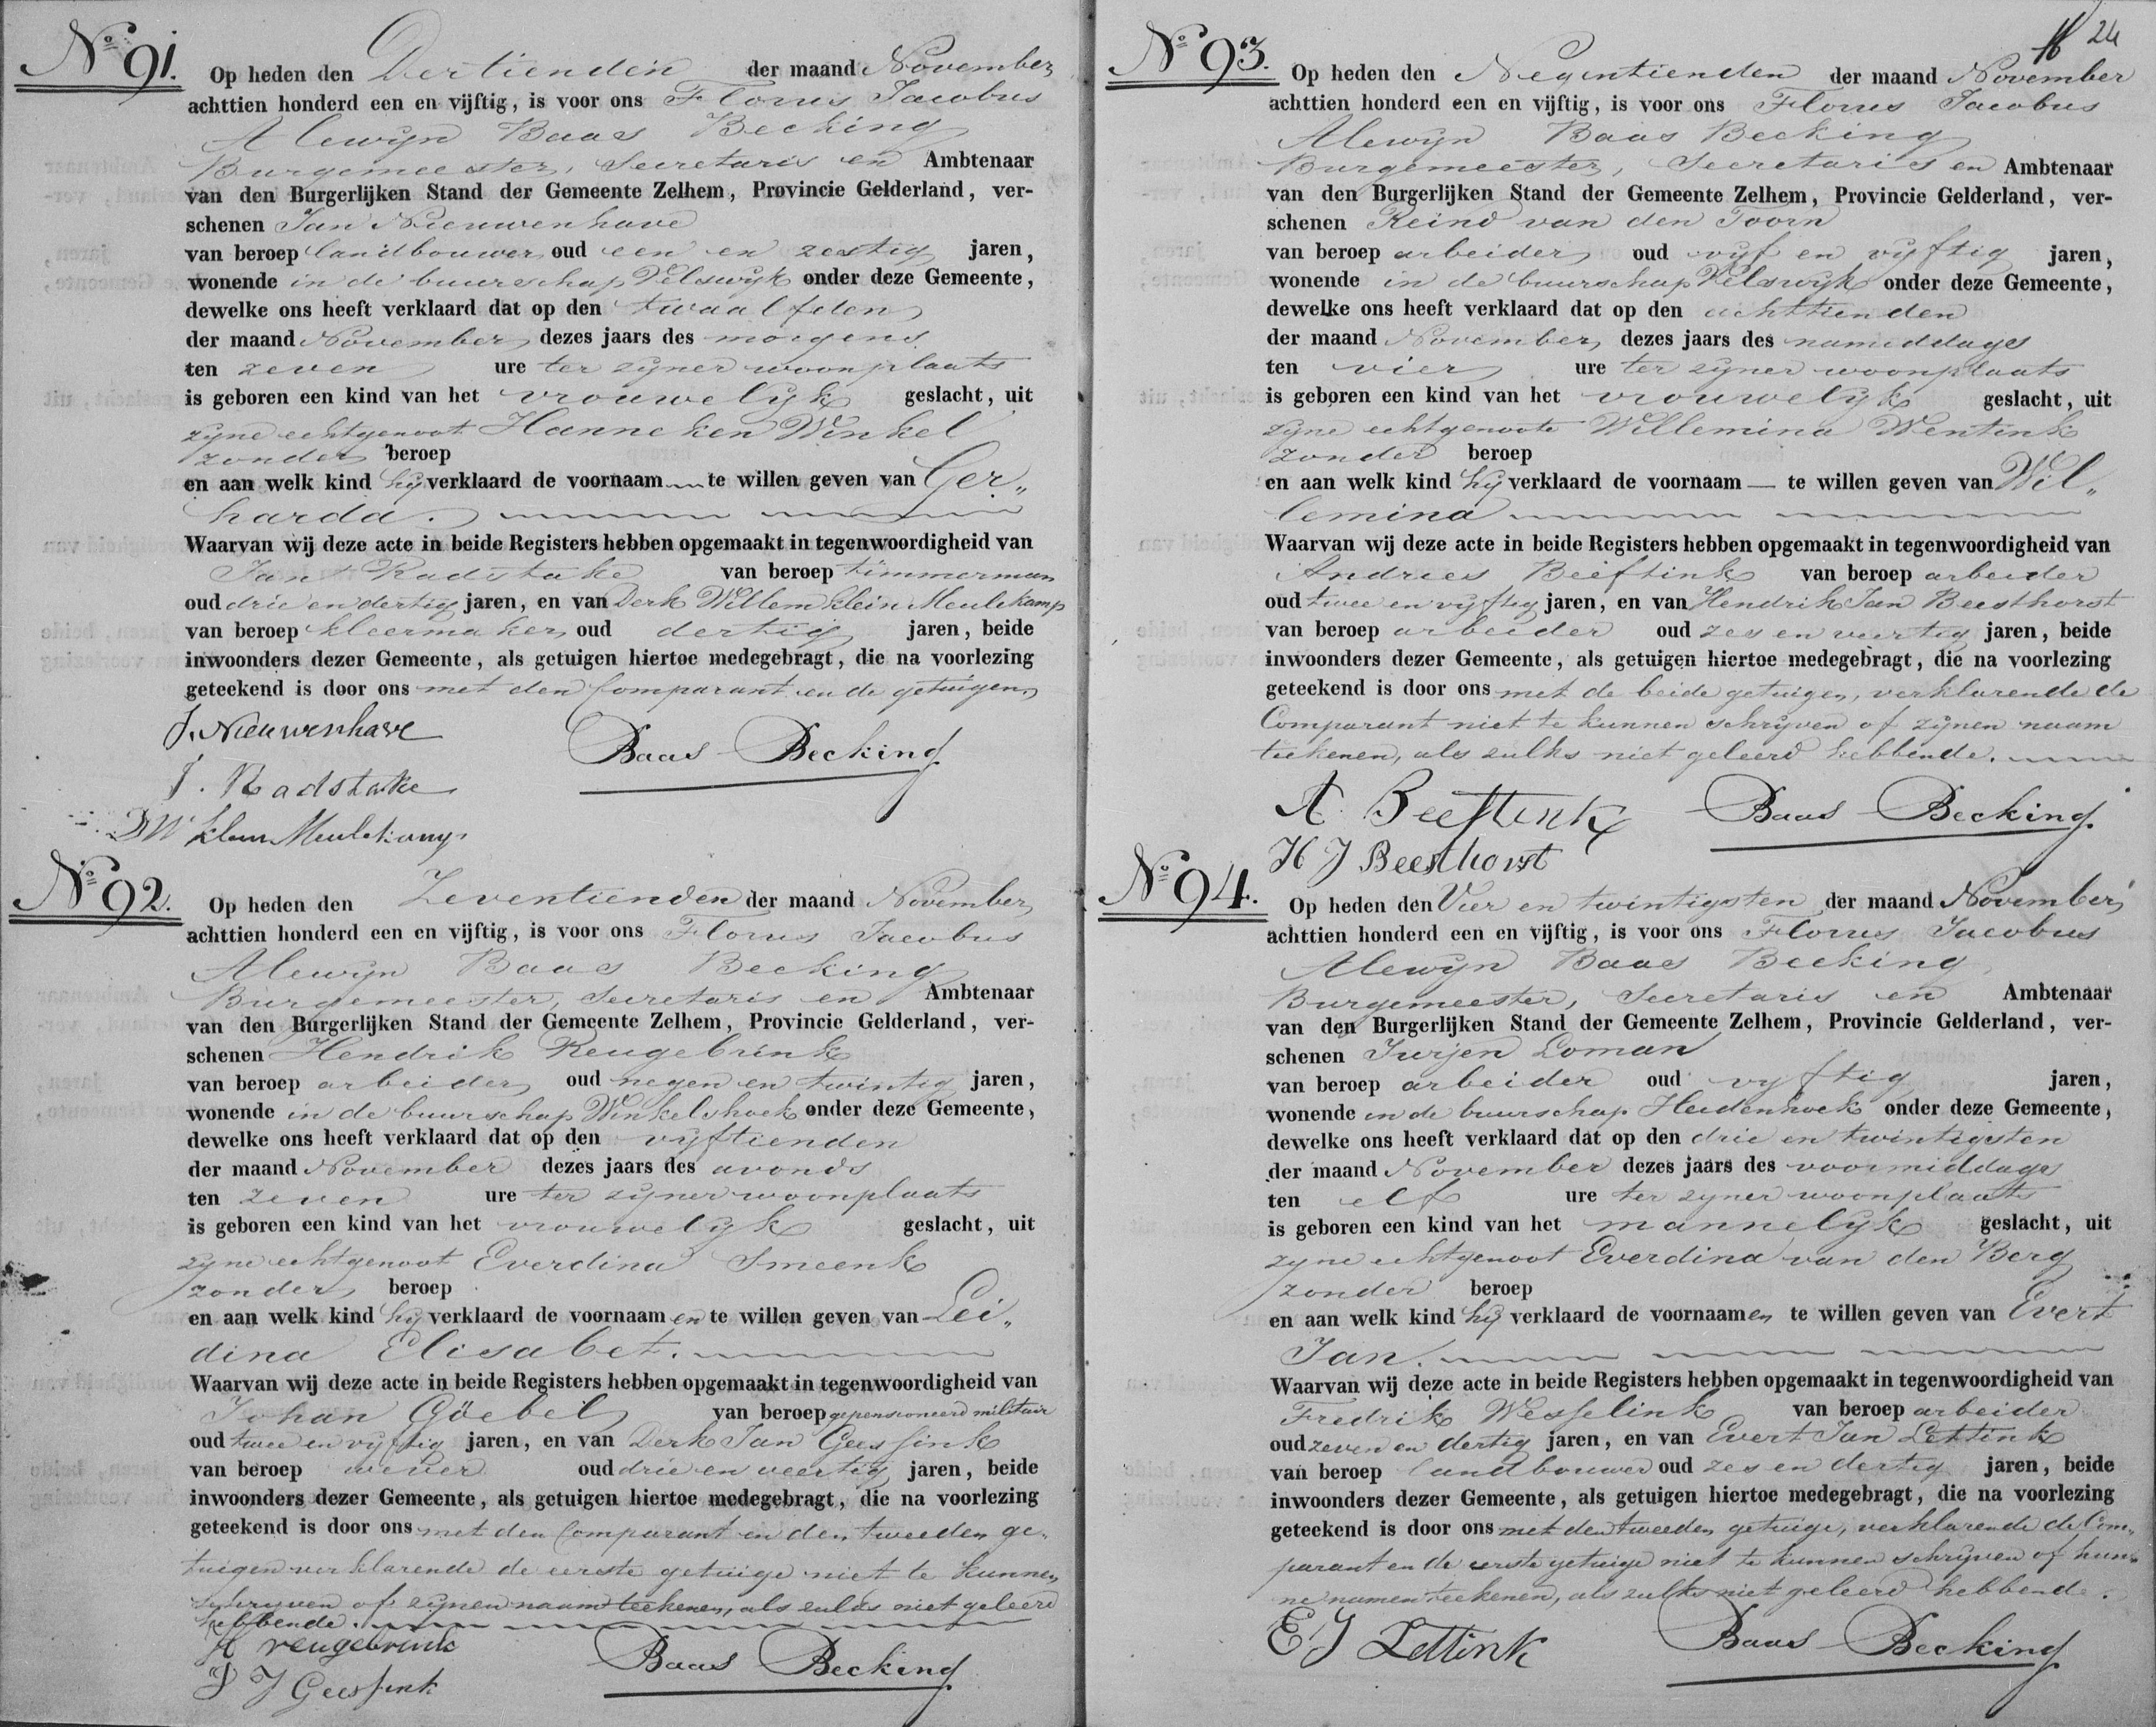 No 91.
Op heden den Dertienden der maand November
achttien honderd een en vijftig, is voor ons Florus Jacobus
Alewijn Baas Becking
Burgemeester, Secretaris en Ambtenaar
van den Burgerlijken Stand der Gemeente Zelhem, Provincie Gelderland, ver-
schenen Jan Nieuwenhave
van beroep landbouwer oud een en zestig jaren,
wonende in de buurschap Velswijk onder deze Gemeente,
dewelke ons heeft verklaard dat op den twaalfden
der maand November dezes jaars des morgens
ten zeven ure ter zijner woonplaats
is geboren een kind van het vrouwelijk geslacht, uit
zijne echtgenoot Hanneken Winkel
zonder beroep
en aan welk kind hij verklaard de voornaam te willen geven van Ger„
harda.
Waarvan wij deze acte in beide Registers hebben opgemaakt in tegenwoordigheid van
Jan Radstake van beroep timmerman
oud drie en dertig jaren, en van Derk Willem klein Meulekamp
van beroep kleermaker oud dertig jaren, beide
inwoonders dezer Gemeente, als getuigen hiertoe medegebragt, die na voorlezing
geteekend is door ons met den Comparant en de getuigen
J. Nieuwenhave
Baas Becking
J. Radstake
DW klein Meulekamp
No 92.
Op heden den Zeventienden der maand November
achttien honderd een en vijftig, is voor ons Florus Jacobus
Alewijn Baas Becking
Burgemeester, Secretaris en Ambtenaar
van den Burgerlijken Stand der Gemeente Zelhem, Provincie Gelderland, ver-
schenen Hendrik Reugebrink
van beroep arbeider oud negen en twintig jaren,
wonende in de buurschap Winkelshoek onder deze Gemeente,
dewelke ons heeft verklaard dat op den vijftienden
der maand November dezes jaars des avonds
ten zeven ure ter zijner woonplaats
is geboren een kind van het vrouwelijk geslacht, uit
zijne echtgenoot Everdina Smeenk
zonder beroep
en aan welk kind hij verklaard de voornaamen te willen geven van Lei„
dina Elisabet.
Waarvan wij deze acte in beide Registers hebben opgemaakt in tegenwoordigheid van
Johan Göebel van beroep gepensioneerd militair
oud twee en vijftig jaren, en van Derk Jan Geessink
van beroep wever oud drie en veertig jaren, beide
inwoonders dezer Gemeente, als getuigen hiertoe medegebragt, die na voorlezing
geteekend is door ons met den Comparant en den tweeden ge„
tuigen verklarende de eerste getuige niet te kunnen
schrijven of zijnen naam teekenen, als zulks niet geleerd
hebbende.
H reugebrink
Baas Becking
D J Geessink
24
No 93.
Op heden den Negentienden der maand November
achttien honderd een en vijftig, is voor ons Florus Jacobus
Alewijn Baas Becking
Burgemeester, Secretaris en Ambtenaar
van den Burgerlijken Stand der Gemeente Zelhem, Provincie Gelderland, ver-
schenen Reind van den Toorn
van beroep arbeider oud vijf en vijftig jaren,
wonende in de buurschap Velswijk onder deze Gemeente,
dewelke ons heeft verklaard dat op den achttienden
der maand November dezes jaars des namiddags
ten vier ure ter zijner woonplaats
is geboren een kind van het vrouwelijk geslacht, uit
zijne echtgenoote Willemina Wentink
zonder beroep
en aan welk kind hij verklaard de voornaam — te willen geven van Wil„
lemina
Waarvan wij deze acte in beide Registers hebben opgemaakt in tegenwoordigheid van
Andries Beeftink van beroep arbeider
oud twee en vijftig jaren, en van Hendrik Jan Beesthorst
van beroep arbeider oud zes en veertig jaren, beide
inwoonders dezer Gemeente, als getuigen hiertoe medegebragt, die na voorlezing
geteekend is door ons met de beide getuigen, verklarende de
Comparant niet te kunnen schrijven of zijnen naam
teekenen, als zulks niet geleerd hebbende.
A. Beeftink
Baas Becking
H J Beesthorst
No 94.
Op heden den Vier en twintigsten der maand November
achttien honderd een en vijftig, is voor ons Florus Jacobus
Alewijn Baas Becking
Burgemeester, Secretaris en Ambtenaar
van den Burgerlijken Stand der Gemeente Zelhem, Provincie Gelderland, ver-
schenen Jurjen Loman
van beroep arbeider oud vijftig jaren,
wonende in de buurschap Heidenhoek onder deze Gemeente,
dewelke ons heeft verklaard dat op den drie en twintigsten
der maand November dezes jaars des voormiddags
ten elf ure ter zijner woonplaats
is geboren een kind van het mannelijk geslacht, uit
zijne echtgenoot Everdina van den Berg
zonder beroep
en aan welk kind hij verklaard de voornaamen te willen geven van Evert
Jan.
Waarvan wij deze acte in beide Registers hebben opgemaakt in tegenwoordigheid van
Fredrik Wesselink van beroep arbeider
oud zeven en dertig jaren, en van Evert Jan Lettink
van beroep landbouwer oud zes en dertig jaren, beide
inwoonders dezer Gemeente, als getuigen hiertoe medegebragt, die na voorlezing
geteekend is door ons met den tweeden getuige, verklarende de Com„
parant en de eerste getuige niet te kunnen schrijven of hun„
ne namen teekenen, als zulks niet geleerd hebbende.
E J Lettink
Baas Becking